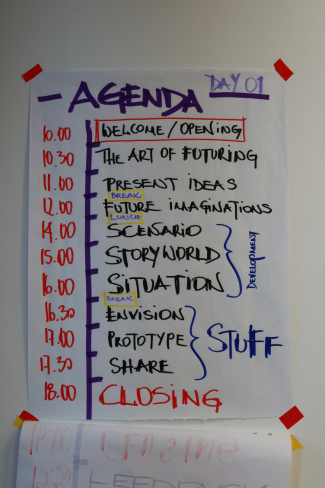 DAY 01
- AGENDA
10.00 WELCOME/OPENING
10.30 THE ART OF FUTURING
11.00 PRESENT IDEAS
BREAK
12.00 FUTURE IMAGINATIONS
LUNCH
14.00 SCENARIO
15.00 STORYWORLD
16.00 SITUATION
DEVELOPMENT
BREAK
16.30 ENVISION
17.00 PROTOTYPE
17.30 SHARE
STUFF
18.00 CLOSING